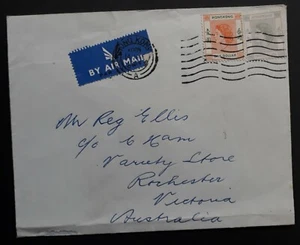 HONG KONG
BY AIR MAIL
A
Mr Reg Ellis
c/o E Ham
Variety Store
Rochester
Victoria
Australia